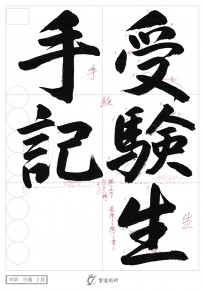 受験生
手記
手
験
生
中学 行書 2月
書道総研